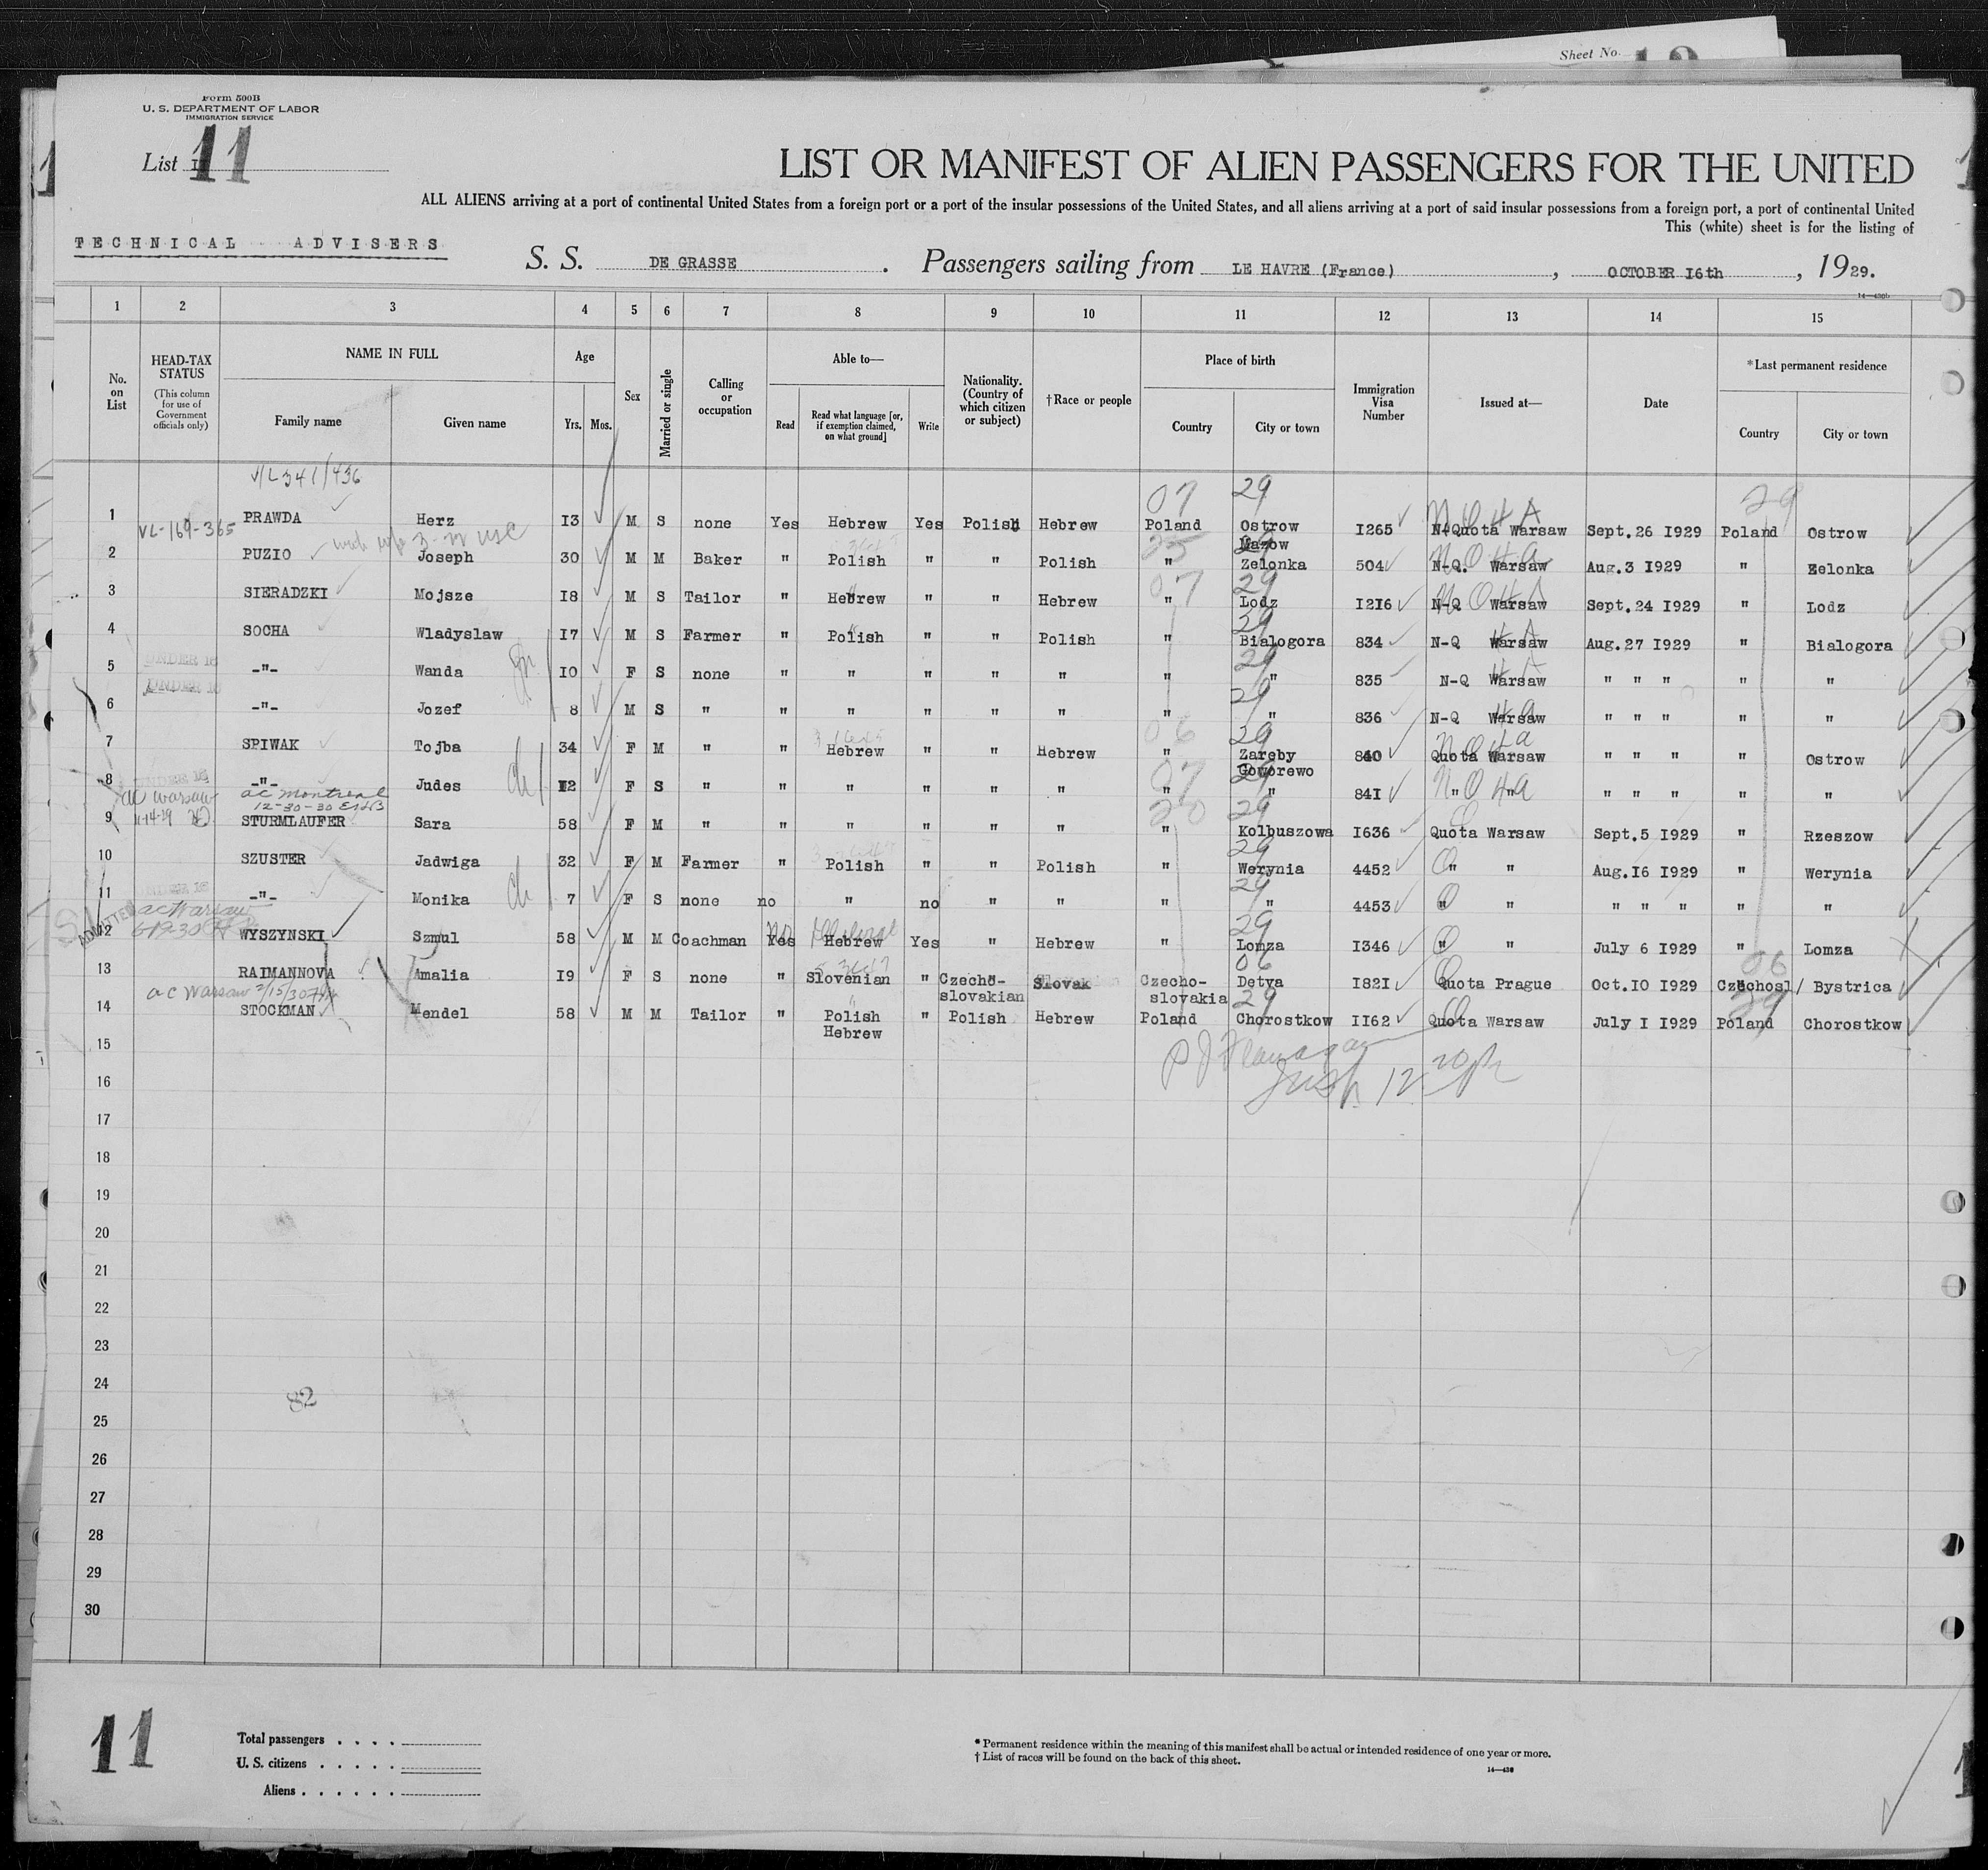 Sheet No.
Form 500B
U. S. DEPARTMENT OF LABOR
IMMIGRATION SERVICE
List 11
LIST OR MANIFEST OF ALIEN PASSENGERS FOR THE UNITED
ALL ALIENS arriving at a port of continental United States from a foreign port or a port of the insular possessions of the United States, and all aliens arriving at a port of said insular possessions from a foreign port, a port of continental United
This (white) sheet is for the listing of
TECHNICAL ADVISERS
S. S. DE GRASSE . Passengers sailing from LE HAVRE (France) , OCTOBER I6th , 1929.
1 2 3 4 5 6 7 8 9 10 11 12 13 14 15
No. on List
HEAD-TAX STATUS
(This column for use of Government officials only)
NAME IN FULL
Family name Given name
Age
Yrs. Mos.
Sex
Married or single
Calling or occupation
Able to—
Read
Read what language [or, if exemption claimed, on what ground]
Write
Nationality. (Country of which citizen or subject)
†Race or people
Place of birth
Country City or town
Immigration Visa Number
Issued at—
Date
*Last permanent residence
Country City or town
07 29 29
1 PRAWDA Herz I3 M S none Yes Hebrew Yes Polish Hebrew Poland Ostrow Mazow I265 N-Quota Warsaw Sept.26 I929 Poland Ostrow
VL-169-365
2 PUZIO Joseph 30 M M Baker " Polish " " Polish " Zelonka 504 N-Q. Warsaw Aug.3 I929 " Zelonka
3 SIERADZKI Mojsze I8 M S Tailor " Hebrew " " Hebrew " Lodz I2I6 N-Q Warsaw Sept.24 I929 " Lodz
4 SOCHA Wladyslaw I7 M S Farmer " Polish " " Polish " Bialogora 834 N-Q Warsaw Aug.27 I929 " Bialogora
UNDER 16
5 -"- Wanda I0 F S none " " " " " " " 835 N-Q Warsaw " " " " "
UNDER 16
6 -"- Jozef 8 M S " " " " " " " " 836 N-Q Warsaw " " " " "
7 SPIWAK Tojba 34 F M " " Hebrew " " Hebrew " Zareby Goworewo 840 Quota Warsaw " " " " Ostrow
UNDER 16
8 -"- Judes I2 F S " " " " " " " " 84I " " " " " " "
ac Warsaw
ac Montreal
12-30-30
9 STURMLAUFER Sara 58 F M " " " " " " " Kolbuszowa I636 Quota Warsaw Sept.5 I929 " Rzeszow
10 SZUSTER Jadwiga 32 F M Farmer " Polish " " Polish " Werynia 4452 " " Aug.I6 I929 " Werynia
UNDER 16
11 -"- Monika 7 F S none no " no " " " " 4453 " " " " " " "
ADMITTED
ac Warsaw
12 WYSZYNSKI Szmul 58 M M Coachman Yes Hebrew Yes " Hebrew " Lomza I346 " " July 6 I929 " Lomza
13 RAIMANNOVA Amalia I9 F S none " Slovenian " Czecho-slovakian Slovak Czecho-slovakia Detva I82I Quota Prague Oct.I0 I929 Czechosl/ Bystrica
ac Warsaw 2/15/30
14 STOCKMAN Mendel 58 M M Tailor " Polish Hebrew " Polish Hebrew Poland Chorostkow II62 Quota Warsaw July I I929 Poland Chorostkow
15
16
17
18
19
20
21
22
23
24
82
25
26
27
28
29
30
11
Total passengers . . . .
U. S. citizens . . . . .
Aliens . . . . . .
* Permanent residence within the meaning of this manifest shall be actual or intended residence of one year or more.
† List of races will be found on the back of this sheet.